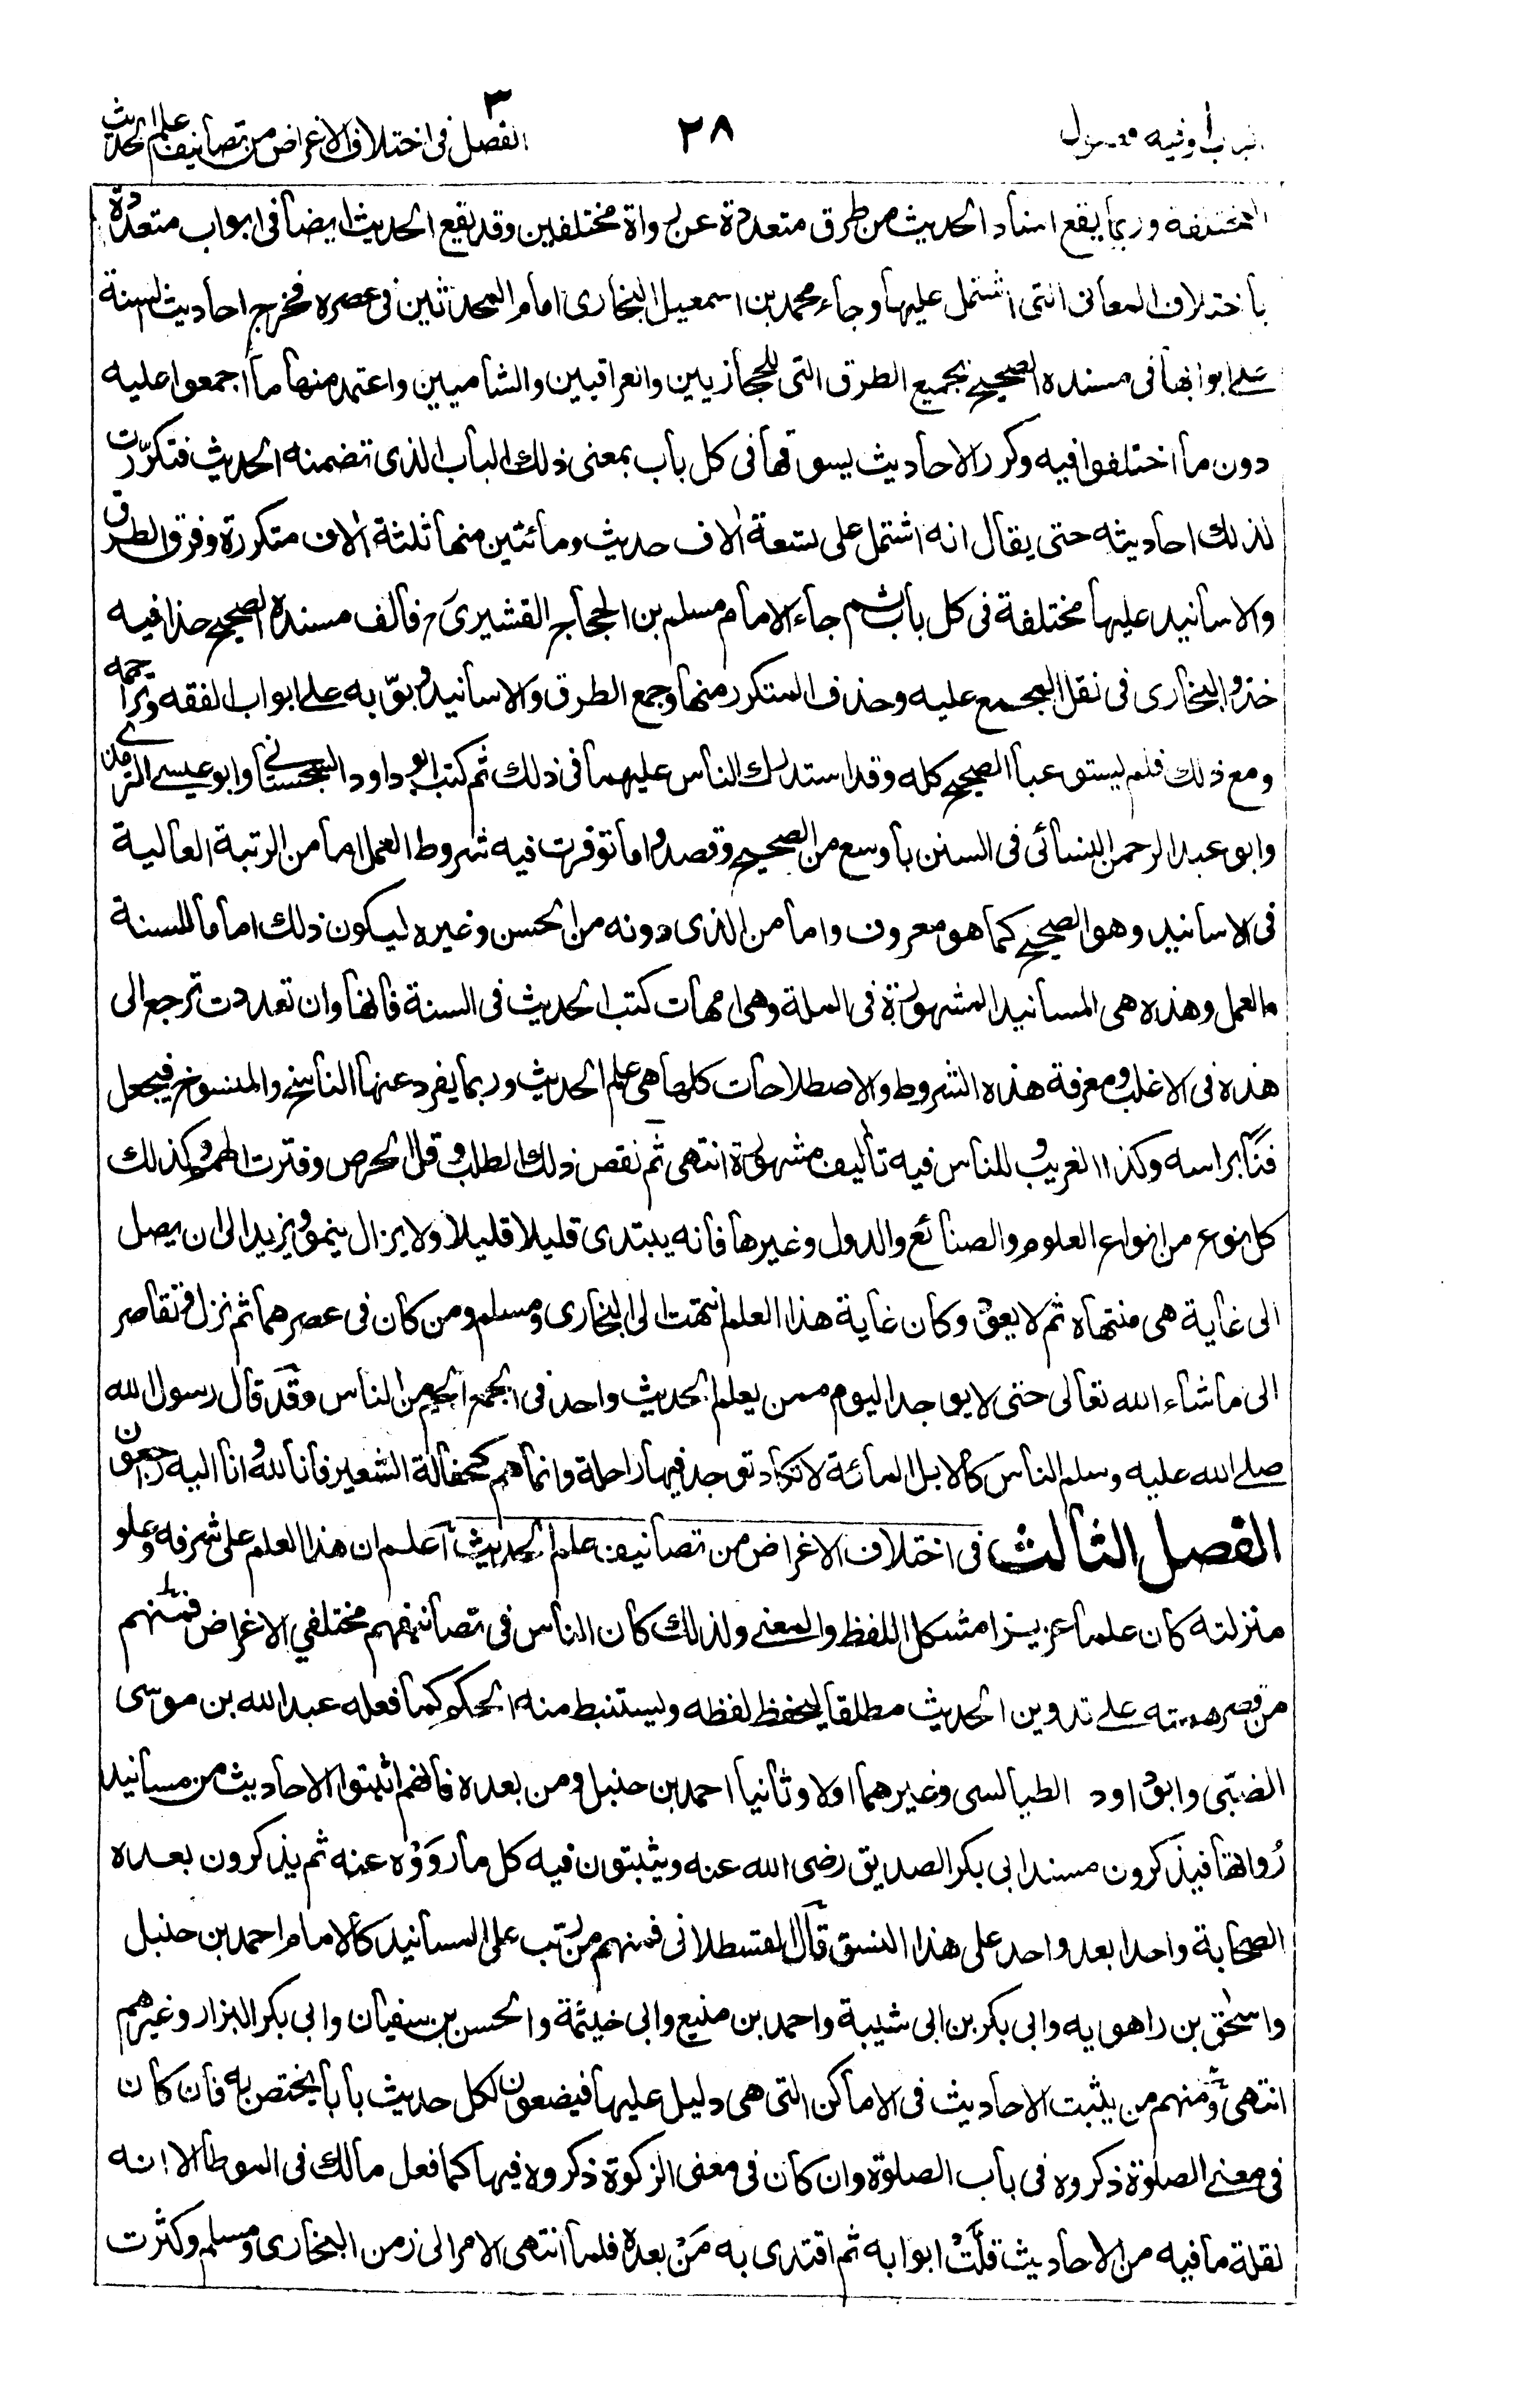 الباب وفيه فصول
٢٨
الفصل ٣ فى اختلاف الاغراض من تصانيف علم الحديث
المختلفة وربما يقع اسناد الحديث من طرق متعددة عن رواة مختلفين وقد يقع الحديث ايضا فى ابواب متعددة
باختلاف المعانى التى اشتمل عليها وجاء محمد بن اسمعيل البخارى امام المحدثين فى عصره فخرج احاديث السنة
على ابوابها فى مسنده الصحيح بجميع الطرق التى للحجازيين والعراقيين والشاميين واعتمد منها ما اجمعوا عليه
دون ما اختلفوا فيه وكرر الاحاديث يسوقها فى كل باب بمعنى ذلك الباب الذى تضمنه الحديث فتكرّرت
لذلك احاديثه حتى يقال انه اشتمل على تسعة اٰلاف حديث ومائتين منها ثلثة اٰلاف متكررة وفرق الطرق
والاسانيد عليها مختلفة فى كل باب ثم جاء الامام مسلم بن الحجاج القشيرى فألف مسنده الصحيح حذا فيه
حذو البخارى فى نقل المجمع عليه وحذف المتكرر منها وجمع الطرق والاسانيد وبوّبه على ابواب الفقه وتراجمه
ومع ذلك فلم يستوعبا الصحيح كله وقد استدرك الناس عليهما فى ذلك ثم كتب ابو داود السجستانى وابو عيسى الترمذى
وابو عبد الرحمن النسائى فى السنن باوسع من الصحيح وقصدوا ما توفرت فيه شروط العمل اما من الرتبة العالية
فى الاسانيد وهو الصحيح كما هو معروف واما من الذى دونه من الحسن وغيره ليكون ذلك اماما للسنة
والعمل وهذه هى المسانيد المشهورة فى الملة وهى امهات كتب الحديث فى السنة فانها وان تعددت ترجع الى
هذه فى الاغلب ومعرفة هذه الشروط والاصطلاحات كلها هى علم الحديث وربما يفرد عنها الناسخ والمنسوخ فيجعل
فنًّا براسه وكذا الغريب وللناس فيه تأليف مشهورة انتهى ثم نقص ذلك الطلب وقل الحرص وفترت الهمم وكذلك
كل نوع من انواع العلوم والصنائع والدول وغيرها فانه يبتدى قليلا قليلا ولا يزال ينمو ويزيد الى ان يصل
الى غاية هى منتهاه ثم لا يعوّ وكان غاية هذا العلم انتهت الى البخارى ومسلم ومن كان فى عصرهما ثم نزل وتقاصر
الى ما شاء الله تعالى حتى لا يوجد اليوم ممن يعلم الحديث واحد فى الجمع الجم من الناس وقد قال رسول الله
صلى الله عليه وسلم الناس كالابل المائة لا تكاد توجد فيها راحلة وانما هم كحفالة الشعير فانا لله وانا اليه راجعون
الفصل الثالث فى اختلاف الاغراض من تصانيف علم الحديث اعلم ان هذا العلم على شرفه وعلو
منزلته كان علما عزيزا مشكل اللفظ والمعنى ولذلك كان الناس فى تصانيفهم مختلفي الاغراض فمنهم
من قصر همته على تدوين الحديث مطلقا ليحفظ لفظه وليستنبط منه الحكم كما فعله عبد الله بن موسى
الضبّى وابو داود الطيالسى وغيرهما اولا وثانيا احمد بن حنبل ومن بعده فانهم اثبتوا الاحاديث من مسانيد
رُواتها فيذكرون مسند ابى بكر الصديق رضى الله عنه ويثبتون فيه كل ما روَوْه عنه ثم يذكرون بعده
الصحابة واحدا بعد واحد على هذا النسق قال القسطلانى فمنهم من رتب على المسانيد كالامام احمد بن حنبل
واسحٰق بن راهويه وابى بكر بن ابى شيبة واحمد بن منيع وابى خيثمة والحسن بن سفيان وابى بكر البزار وغيرهم
انتهى ومنهم من يثبت الاحاديث فى الاماكن التى هى دليل عليها فيضعون لكل حديث بابا يختص به فان كان
فى معنى الصلوة ذكروه فى باب الصلوة وان كان فى معنى الزكوة ذكروه فيها كما فعل مالك فى الموطا الا انه
لقلة ما فيه من الاحاديث قلّتْ ابوابه ثم اقتدى به مَنْ بعده فلما انتهى الامر الى زمن البخارى ومسلم وكثرت